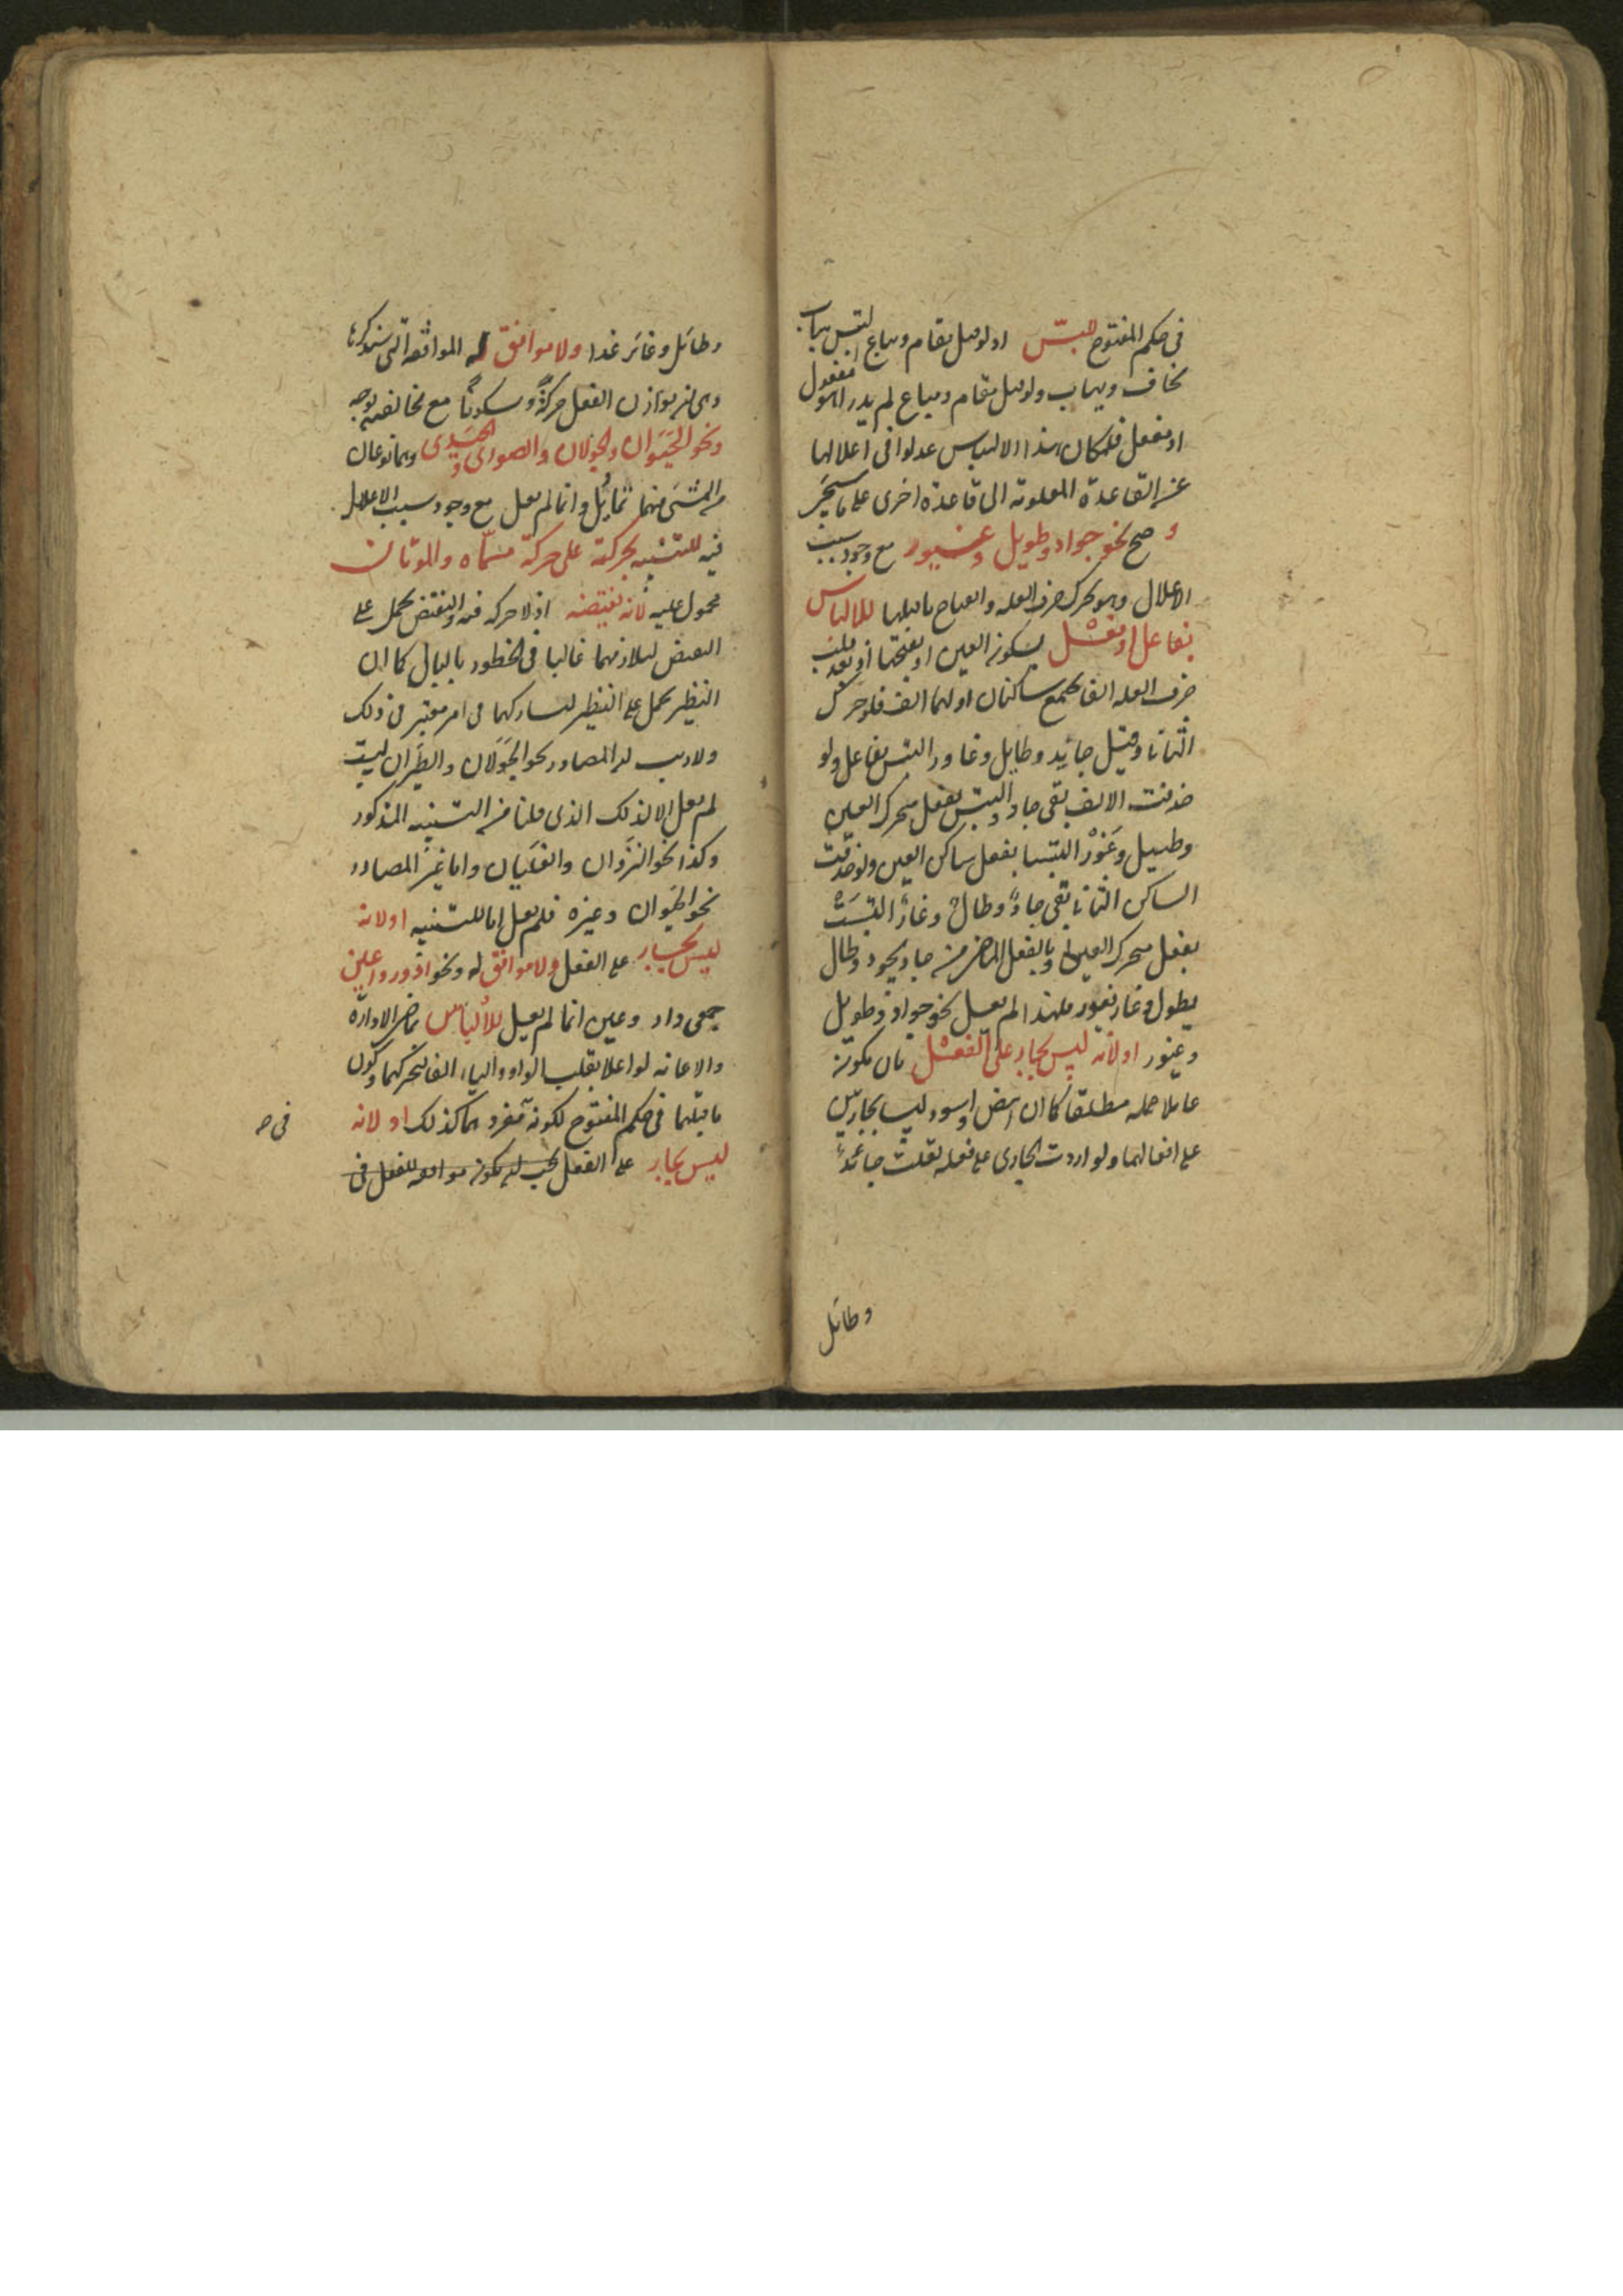 فى حكم المفتوح للبس اذ لو قيل يقام ويباع التبس بباب
يخاف ويهاب ولو قيل مقام ومباع لم يدر اهو مفعول
او مفعل فلمكان هذا الالتباس عدلوا فى اعلالها
عن القاعدة المعلومة الى قاعدة اخرى على ما سيجئ
و صح نحو جواد وطويل وغيور مع وجود سبب
الاعلال وهو تحرك حرف العلة وانفتاح ما قبلها للالباس
بفاعل او بفعل بسكون العين او بفتحها اذ بعد قلب
حرف العلة الفا يجتمع ساكنان اولهما الف فلو حرك
الثانى وقيل جائد وطايل وغاور التبس بفاعل ولو
حذفت الالف بقى جاد والتبس بفعل متحرك العين
وطيل وغور التبسا بفعل ساكن العين ولو حذفت
الساكن الثانى بقى جاد وطال وغار التبست
بفعل متحرك العين او بالفعل الماضى من جاد يجود وطال
يطول وغار يغور فلهذا لم يعل نحو جواد وطويل
وغيور او لانه ليس بجار على الفعل بان يكون
عاملا عمله مطلقا كما ان ابيض واسود ليسا بجاريين
على افعالهما ولو اردت الجارى على فعله لقلت جائد
وطائل
وطائل وغائر غدا ولا موافق له الموافقة التى سنذكرها
وهى ان يوازن الفعل حركة وسكونا مع مخالفة بوجه
ونحو الحيوان والجولان والصورى والحيدى وهما نوعان
من المشى فيهما تمايل وانما لم يعل مع وجود سبب الاعلال
فيه للتنبيه بحركته على حركة مسماه والموتان
محمول عليه لانه نقيضه اذ لا حركة فيه والنقيض يحمل على
النقيض لتلازمهما غالبا فى الخطور بالبال كما ان
النظير يحمل على النظير لتشاركهما فى امر معتبر فى ذلك
ولا ريب ان المصادر نحو الجولان والطيران ليست
لم يعل الا لذلك الذى قلنا من التنبيه المذكور
وكذا نحو النزوان والغليان واما غير المصادر
نحو الحيوان وغيره فلم يعل اما للتنبيه او لانه
ليس بجار على الفعل ولا موافق له ونحو ادور واعين
جمعى دار وعين انما لم يعل للالباس بماضى الادارة
والاعانة لو اعلا بقلب الواو والياء الفا لتحركهما وكون
ما قبلهما فى حكم المفتوح لكونه مفردهما كذلك او لانه
ليس بجار على الفعل يجب ان يكون موافقه للفعل فى
فى حـ